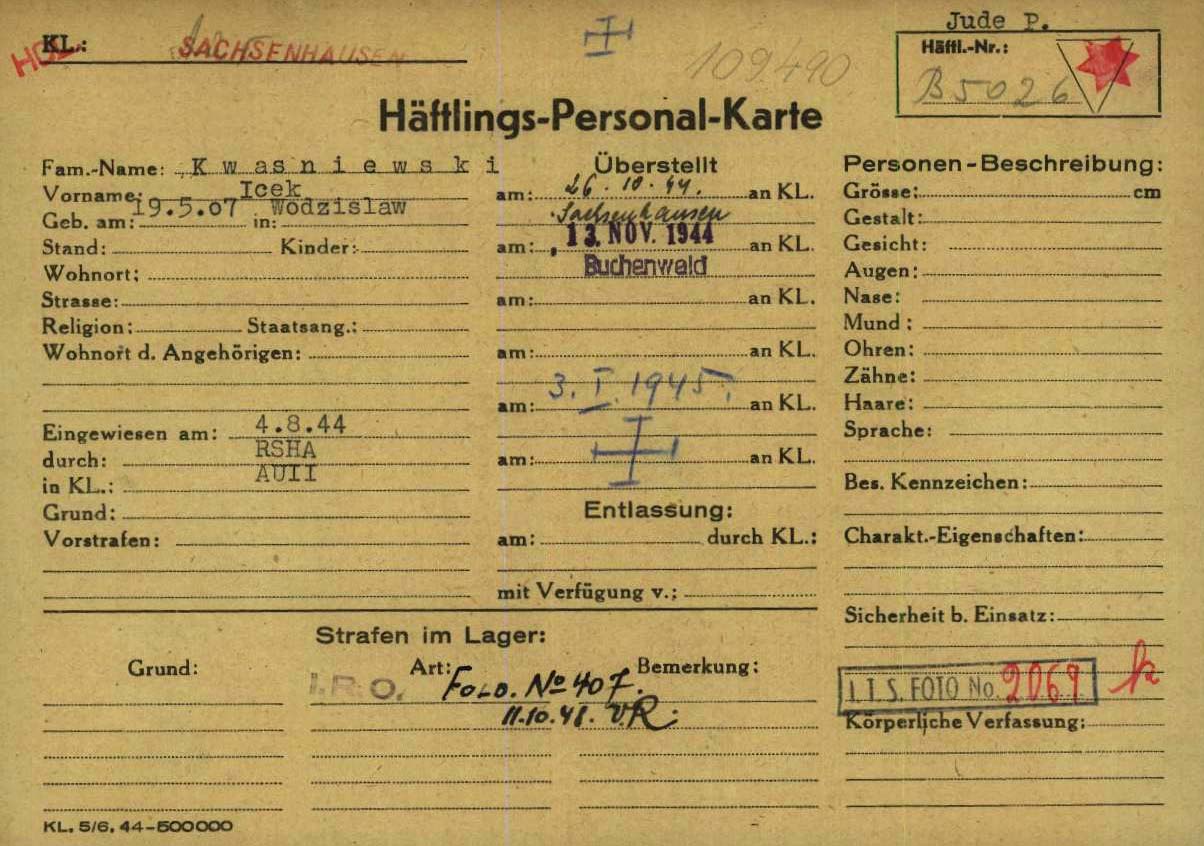 Jude P.
KL.: SACHSENHAUSEN
HOL
109.490
Häftl.-Nr.:
B 5026
Häftlings-Personal-Karte
Fam.-Name: Kwasniewski
Vorname: Icek
Geb. am: 19.5.07 in: Wodzislaw
Stand: Kinder:
Wohnort:
Strasse:
Religion: Staatsang.:
Wohnort d. Angehörigen:
Eingewiesen am: 4.8.44
durch: RSHA
in KL.: AUII
Grund:
Vorstrafen:
Überstellt
am: 26.10.44. an KL.
Sachsenhausen
am: 13. NOV. 1944 an KL.
Buchenwald
am: an KL.
am: an KL.
3. I. 1945.
am: an KL.
am: an KL.
Entlassung:
am: durch KL.:
mit Verfügung v.:
Personen-Beschreibung:
Grösse: cm
Gestalt:
Gesicht:
Augen:
Nase:
Mund:
Ohren:
Zähne:
Haare:
Sprache:
Bes. Kennzeichen:
Charakt.-Eigenschaften:
Sicherheit b. Einsatz:
I.T.S. FOTO No. 2069
Körperliche Verfassung:
Strafen im Lager:
Grund: Art: Bemerkung:
I.R.O. Fold. No 407.
11.10.48. VR.
KL. 5/6. 44-500000